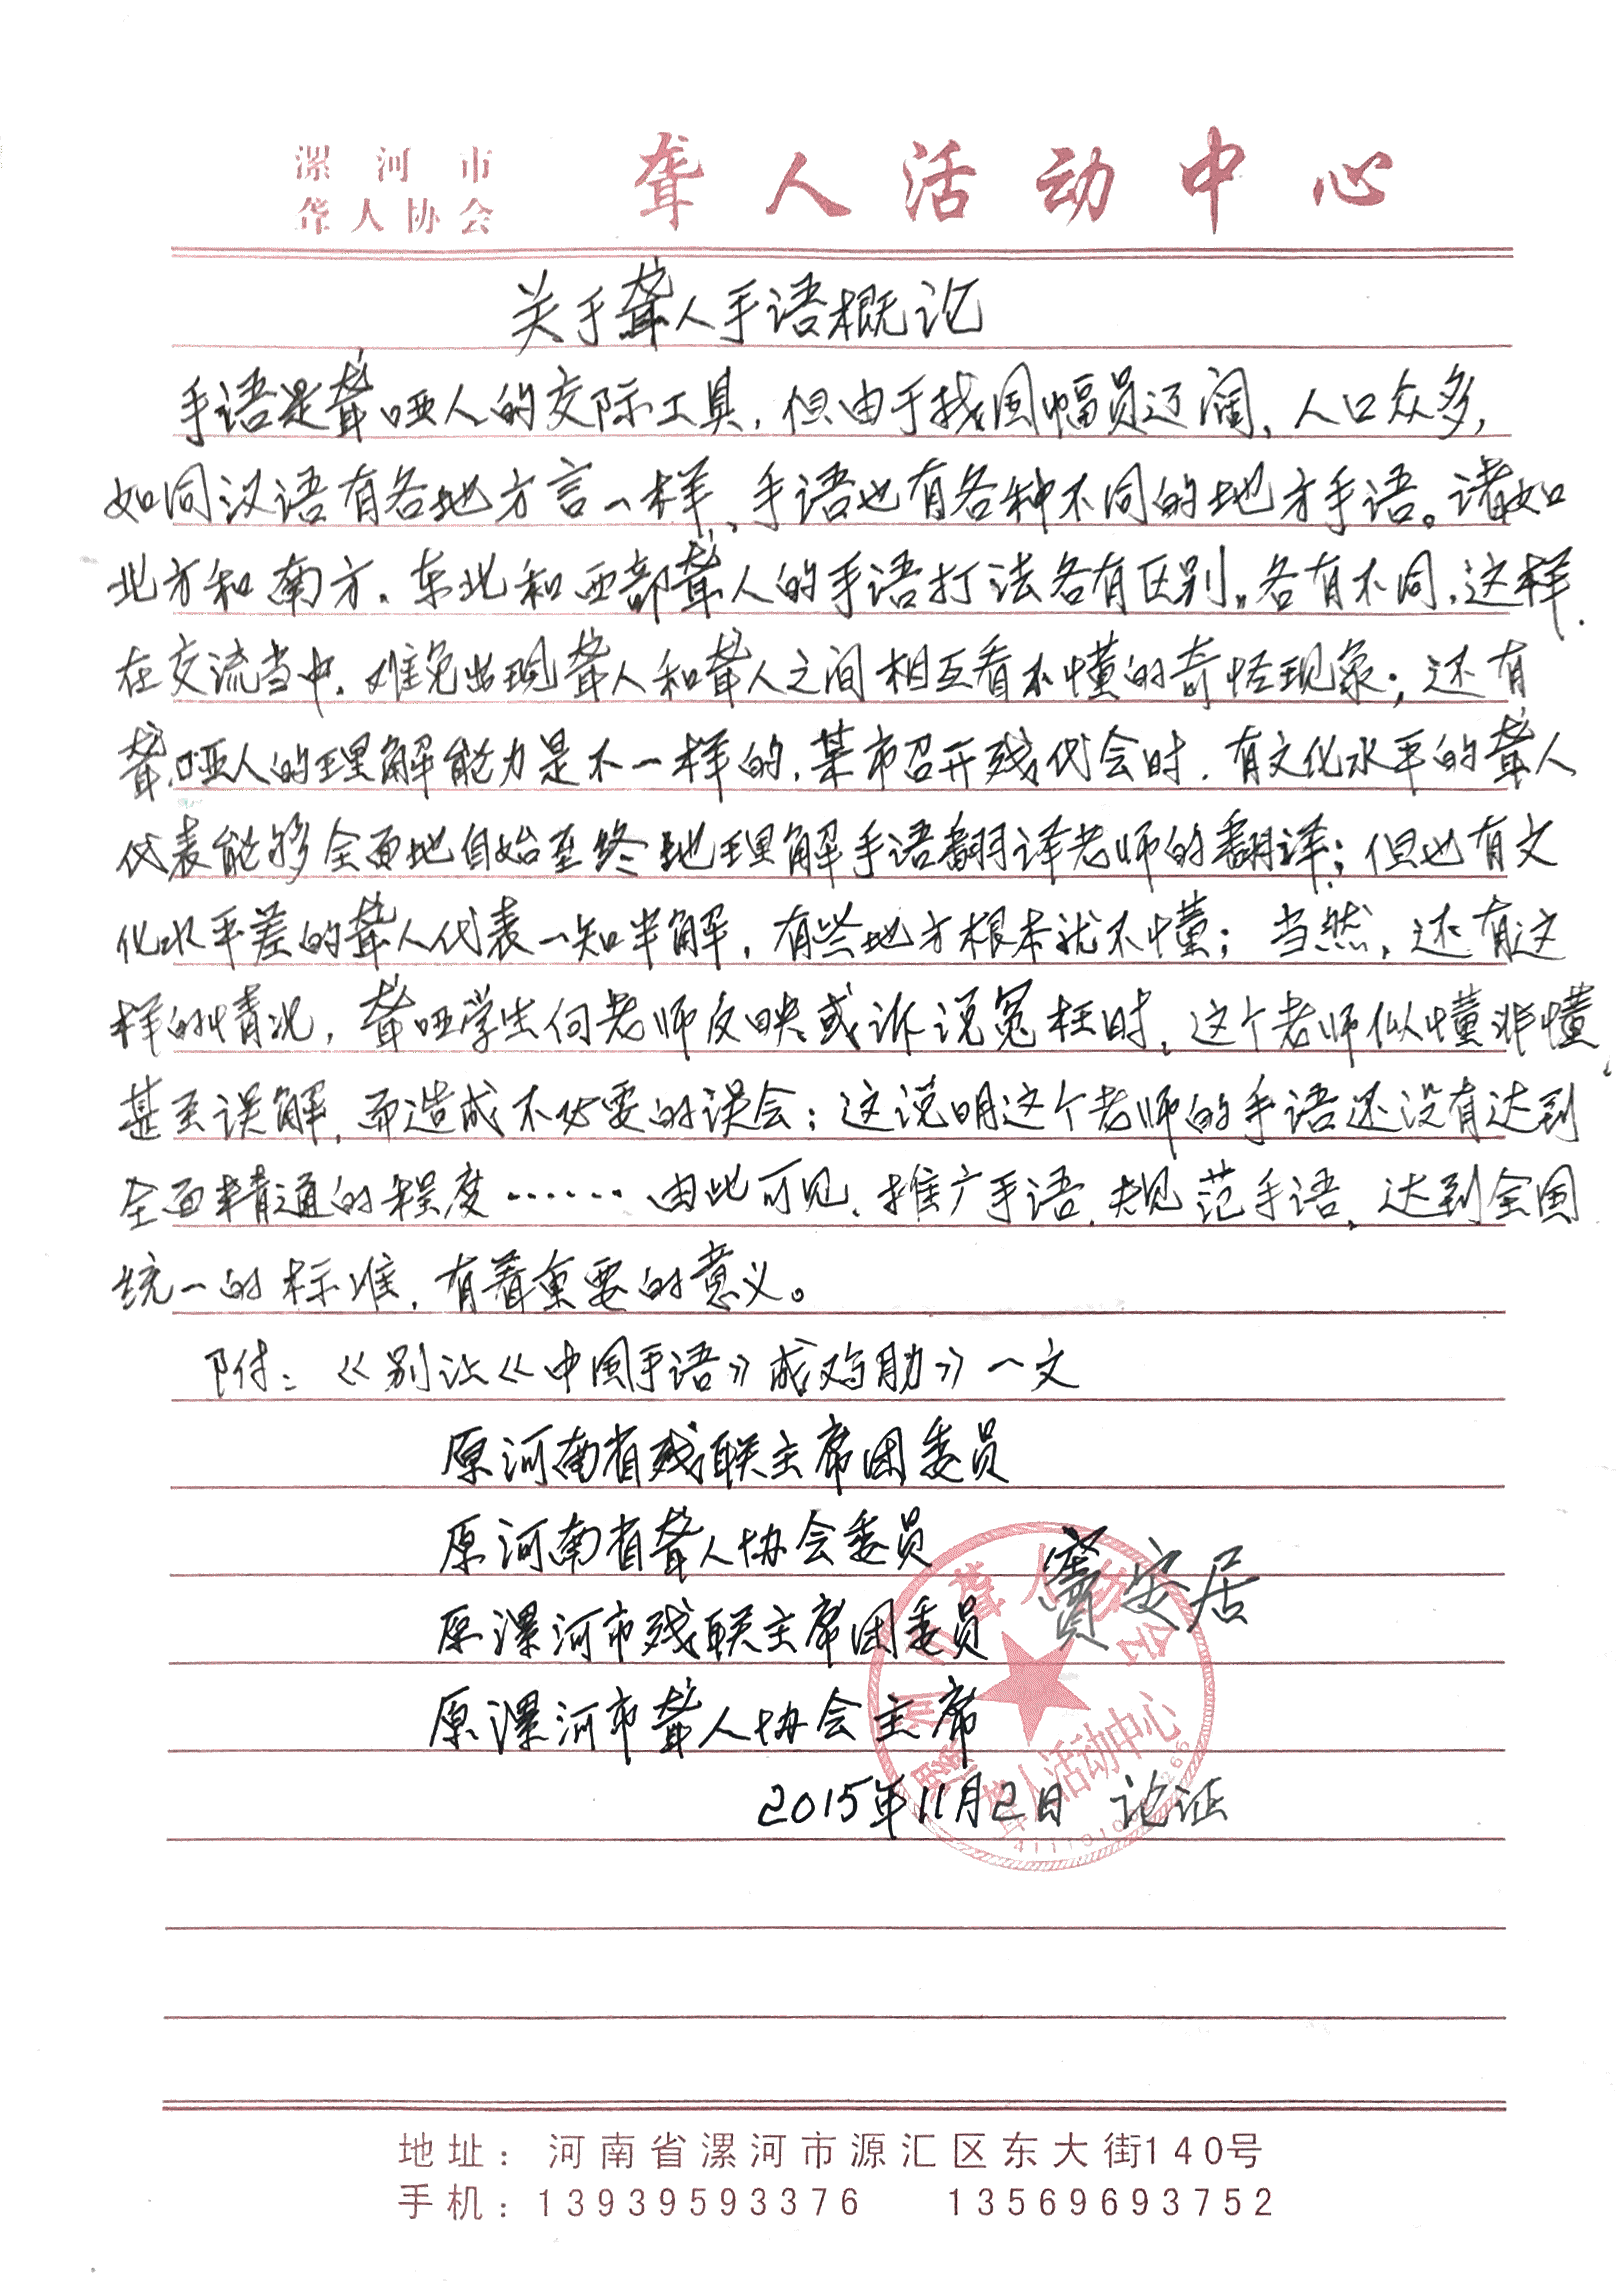 漯河市
聋人协会
聋人活动中心
关于聋人手语概论
手语是聋哑人的交际工具，但由于我国幅员辽阔，人口众多，
如同汉语有各地方言一样，手语也有各种不同的地方手语。诸如
北方和南方、东北和西部聋人的手语打法各有区别，各有不同，这样
在交流当中，难免出现聋人和聋人之间相互看不懂的奇怪现象；还有
聋哑人的理解能力是不一样的，某市召开残代会时，有文化水平的聋人
代表能够全面地自始至终地理解手语翻译老师的翻译；但也有文
化水平差的聋人代表一知半解，有些地方根本就不懂；当然，还有这
样的情况，聋哑学生向老师反映或诉说冤枉时，这个老师似懂非懂，
甚至误解，而造成不必要的误会；这说明这个老师的手语还没有达到
全面精通的程度……由此可见，推广手语，规范手语，达到全国
统一的标准，有着重要的意义。
附：《别让《中国手语》成鸡肋》一文
原河南省残联主席团委员
原河南省聋人协会委员
窦安居
原漯河市残联主席团委员
原漯河市聋人协会主席
2015年11月2日 论证
聋人活动中心
地址：河南省漯河市源汇区东大街140号
手机：13939593376 13569693752